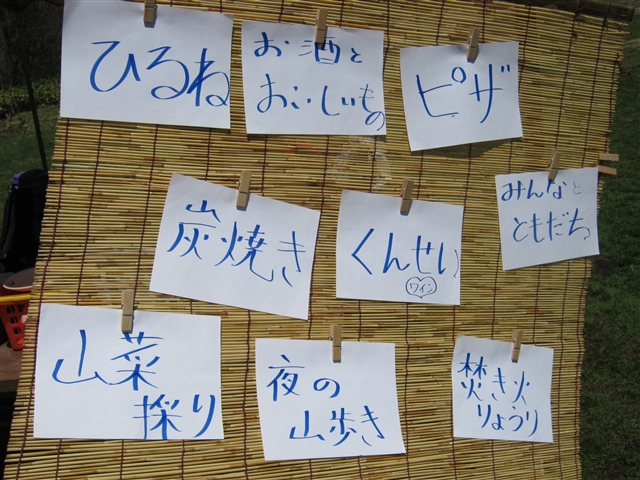 ひるね
お酒と
おいしいもの
ピザ
炭焼き
くんせい
ワイン
みんなと
ともだち
山菜
採り
夜の
山歩き
焚き火
りょうり